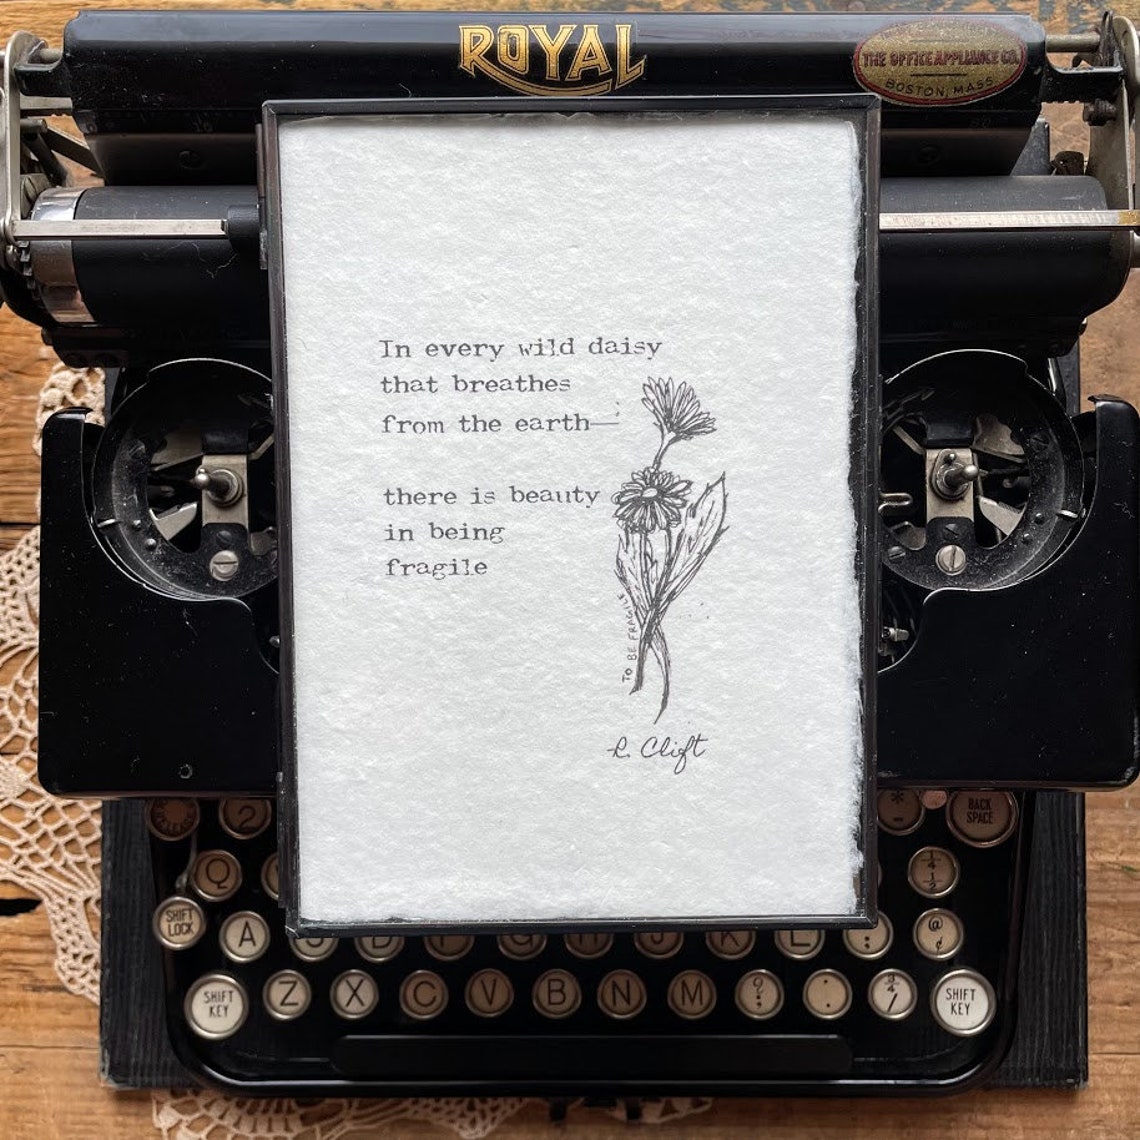 ROYAL
THE OFFICE APPLIANCE CO.
BOSTON, MASS
In every wild daisy
that breathes
from the earth—
there is beauty
in being
fragile
TO BE FRAGILE
R. Clift
2
* -
BACK SPACE
Q
1/4 1/2
SHIFT LOCK
A S D F G H J K L : ; @ ¢
SHIFT KEY Z X C V B N M ? ; : . 3/4 / SHIFT KEY